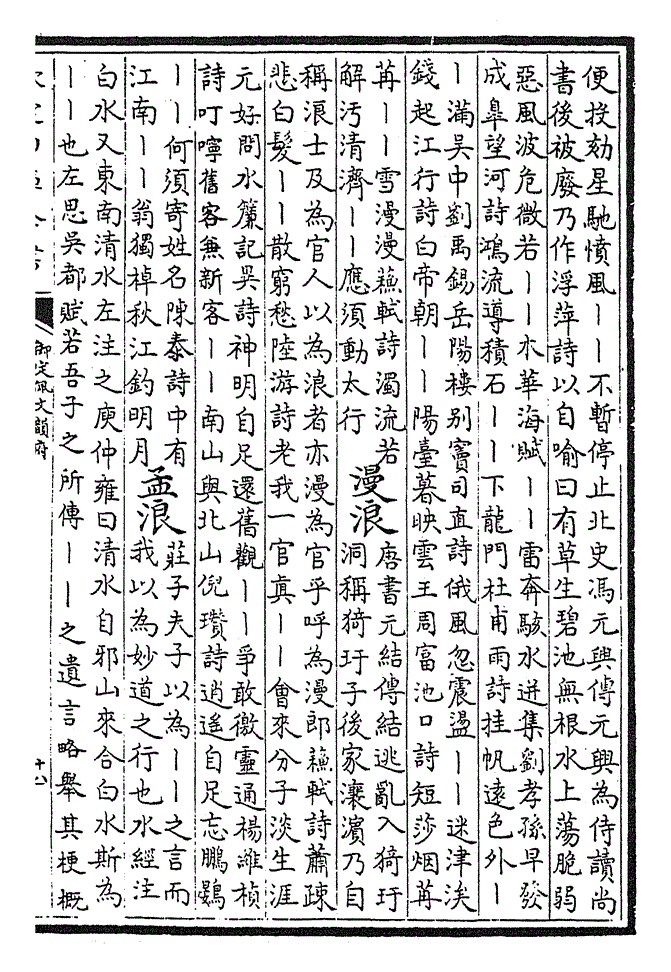 便投劾星馳憤風丨丨不暫停止北史馮元興傳元興為侍讀尚
書後被廢乃作浮萍詩以自喻曰有草生碧池無根水上蕩脆弱
惡風波危微若丨丨木華海賦丨丨雷奔駭水迸集劉孝孫早發
成臯望河詩鴻流導積石丨丨下龍門杜甫雨詩挂帆遠色外丨
丨滿吳中劉禹錫岳陽樓别竇司直詩俄風忽震盪丨丨迷津涘
錢起江行詩白帝朝丨丨陽臺暮映雲王周富池口詩短莎烟苒
苒丨丨雪漫漫蘓軾詩濁流若
解汚清濟丨丨應須動太行
漫浪
唐書元結傳結逃亂入猗玗
洞稱猗玗子後家瀼濵乃自
稱浪士及為官人以為浪者亦漫為官乎呼為漫郎蘓軾詩蕭疎
悲白髮丨丨散窮愁陸游詩老我一官真丨丨會來分子淡生涯
元好問水簾記異詩神明自足還舊觀丨丨爭敢徼靈通楊維楨
詩叮嚀舊客無新客丨丨南山與北山倪瓚詩逍遙自足忘鵬鷃
丨丨何須寄姓名陳泰詩中有
江南丨丨翁獨棹秋江釣明月
孟浪
莊子夫子以為丨丨之言而
我以為妙道之行也水經注
白水又東南清水左注之庾仲雍曰清水自邪山來合白水斯為
丨丨也左思吳都賦若吾子之所傳丨丨之遺言略舉其梗概
御定佩文韻府
十八